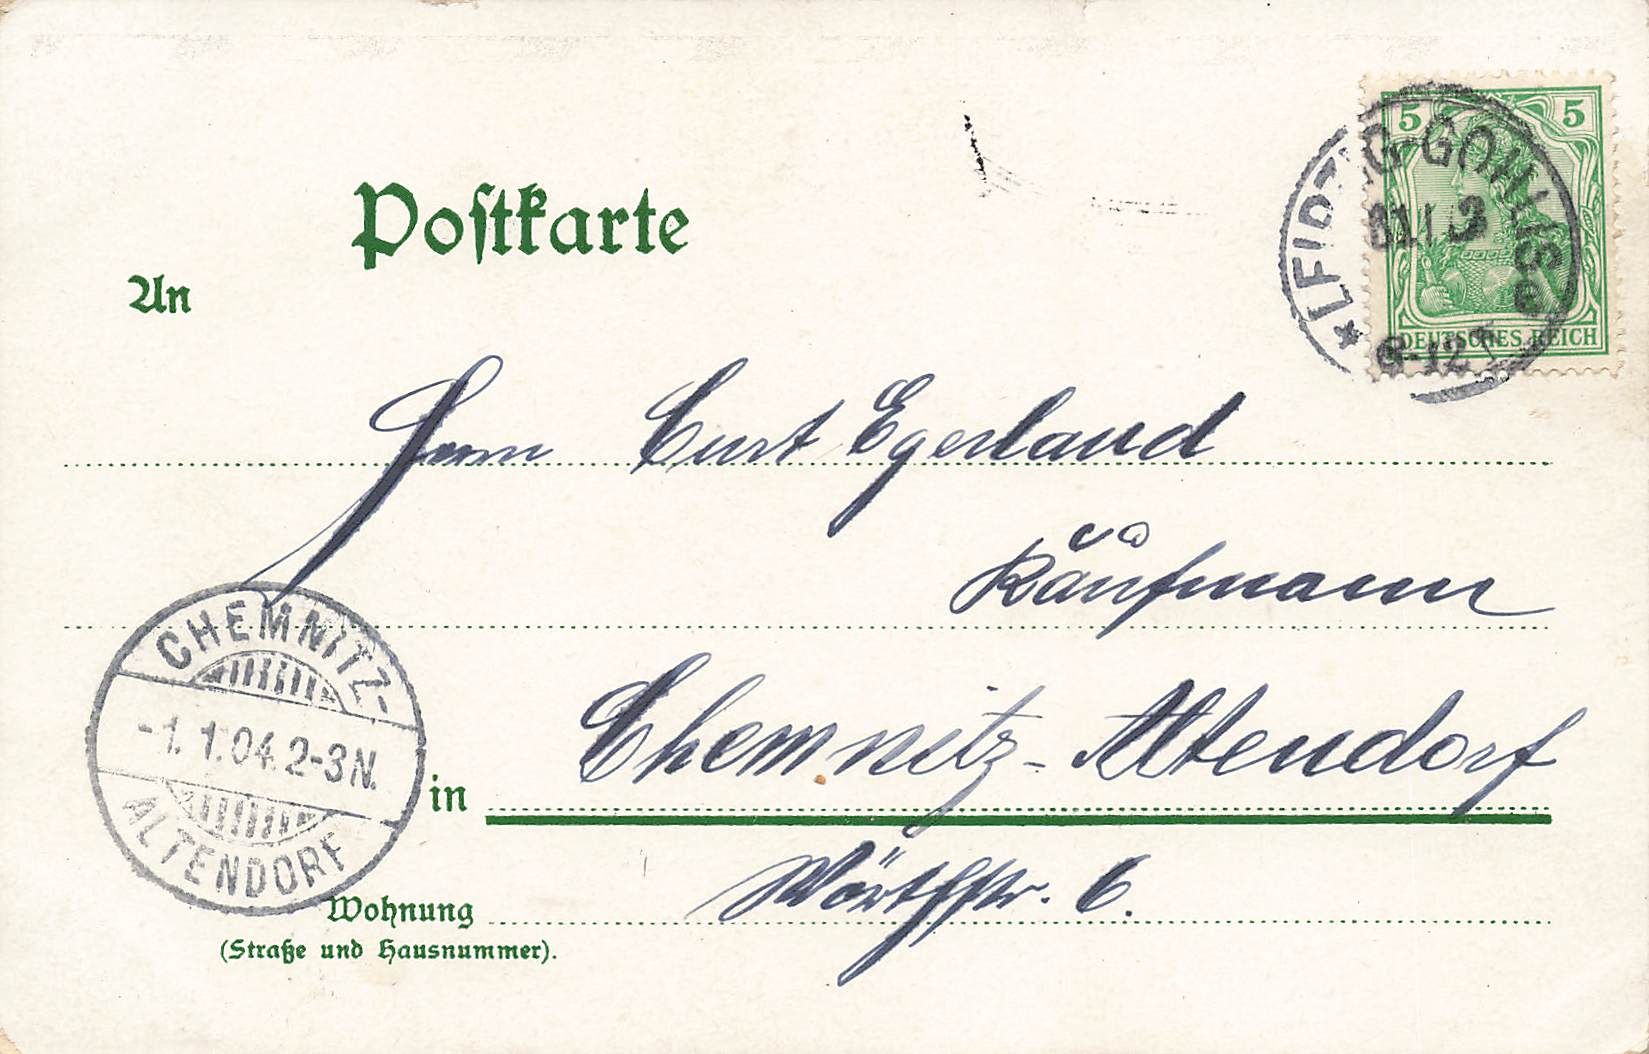 Postkarte
An
5 5
LEIPZIG-GOHLIS
DEUTSCHES REICH
Herrn Curt Egerland
Kaufmann
CHEMNITZ-
-1.1.04.2-3N.
ALTENDORF
in Chemnitz-Altendorf
Wohnung Wörthstr. 6.
(Straße und Hausnummer).